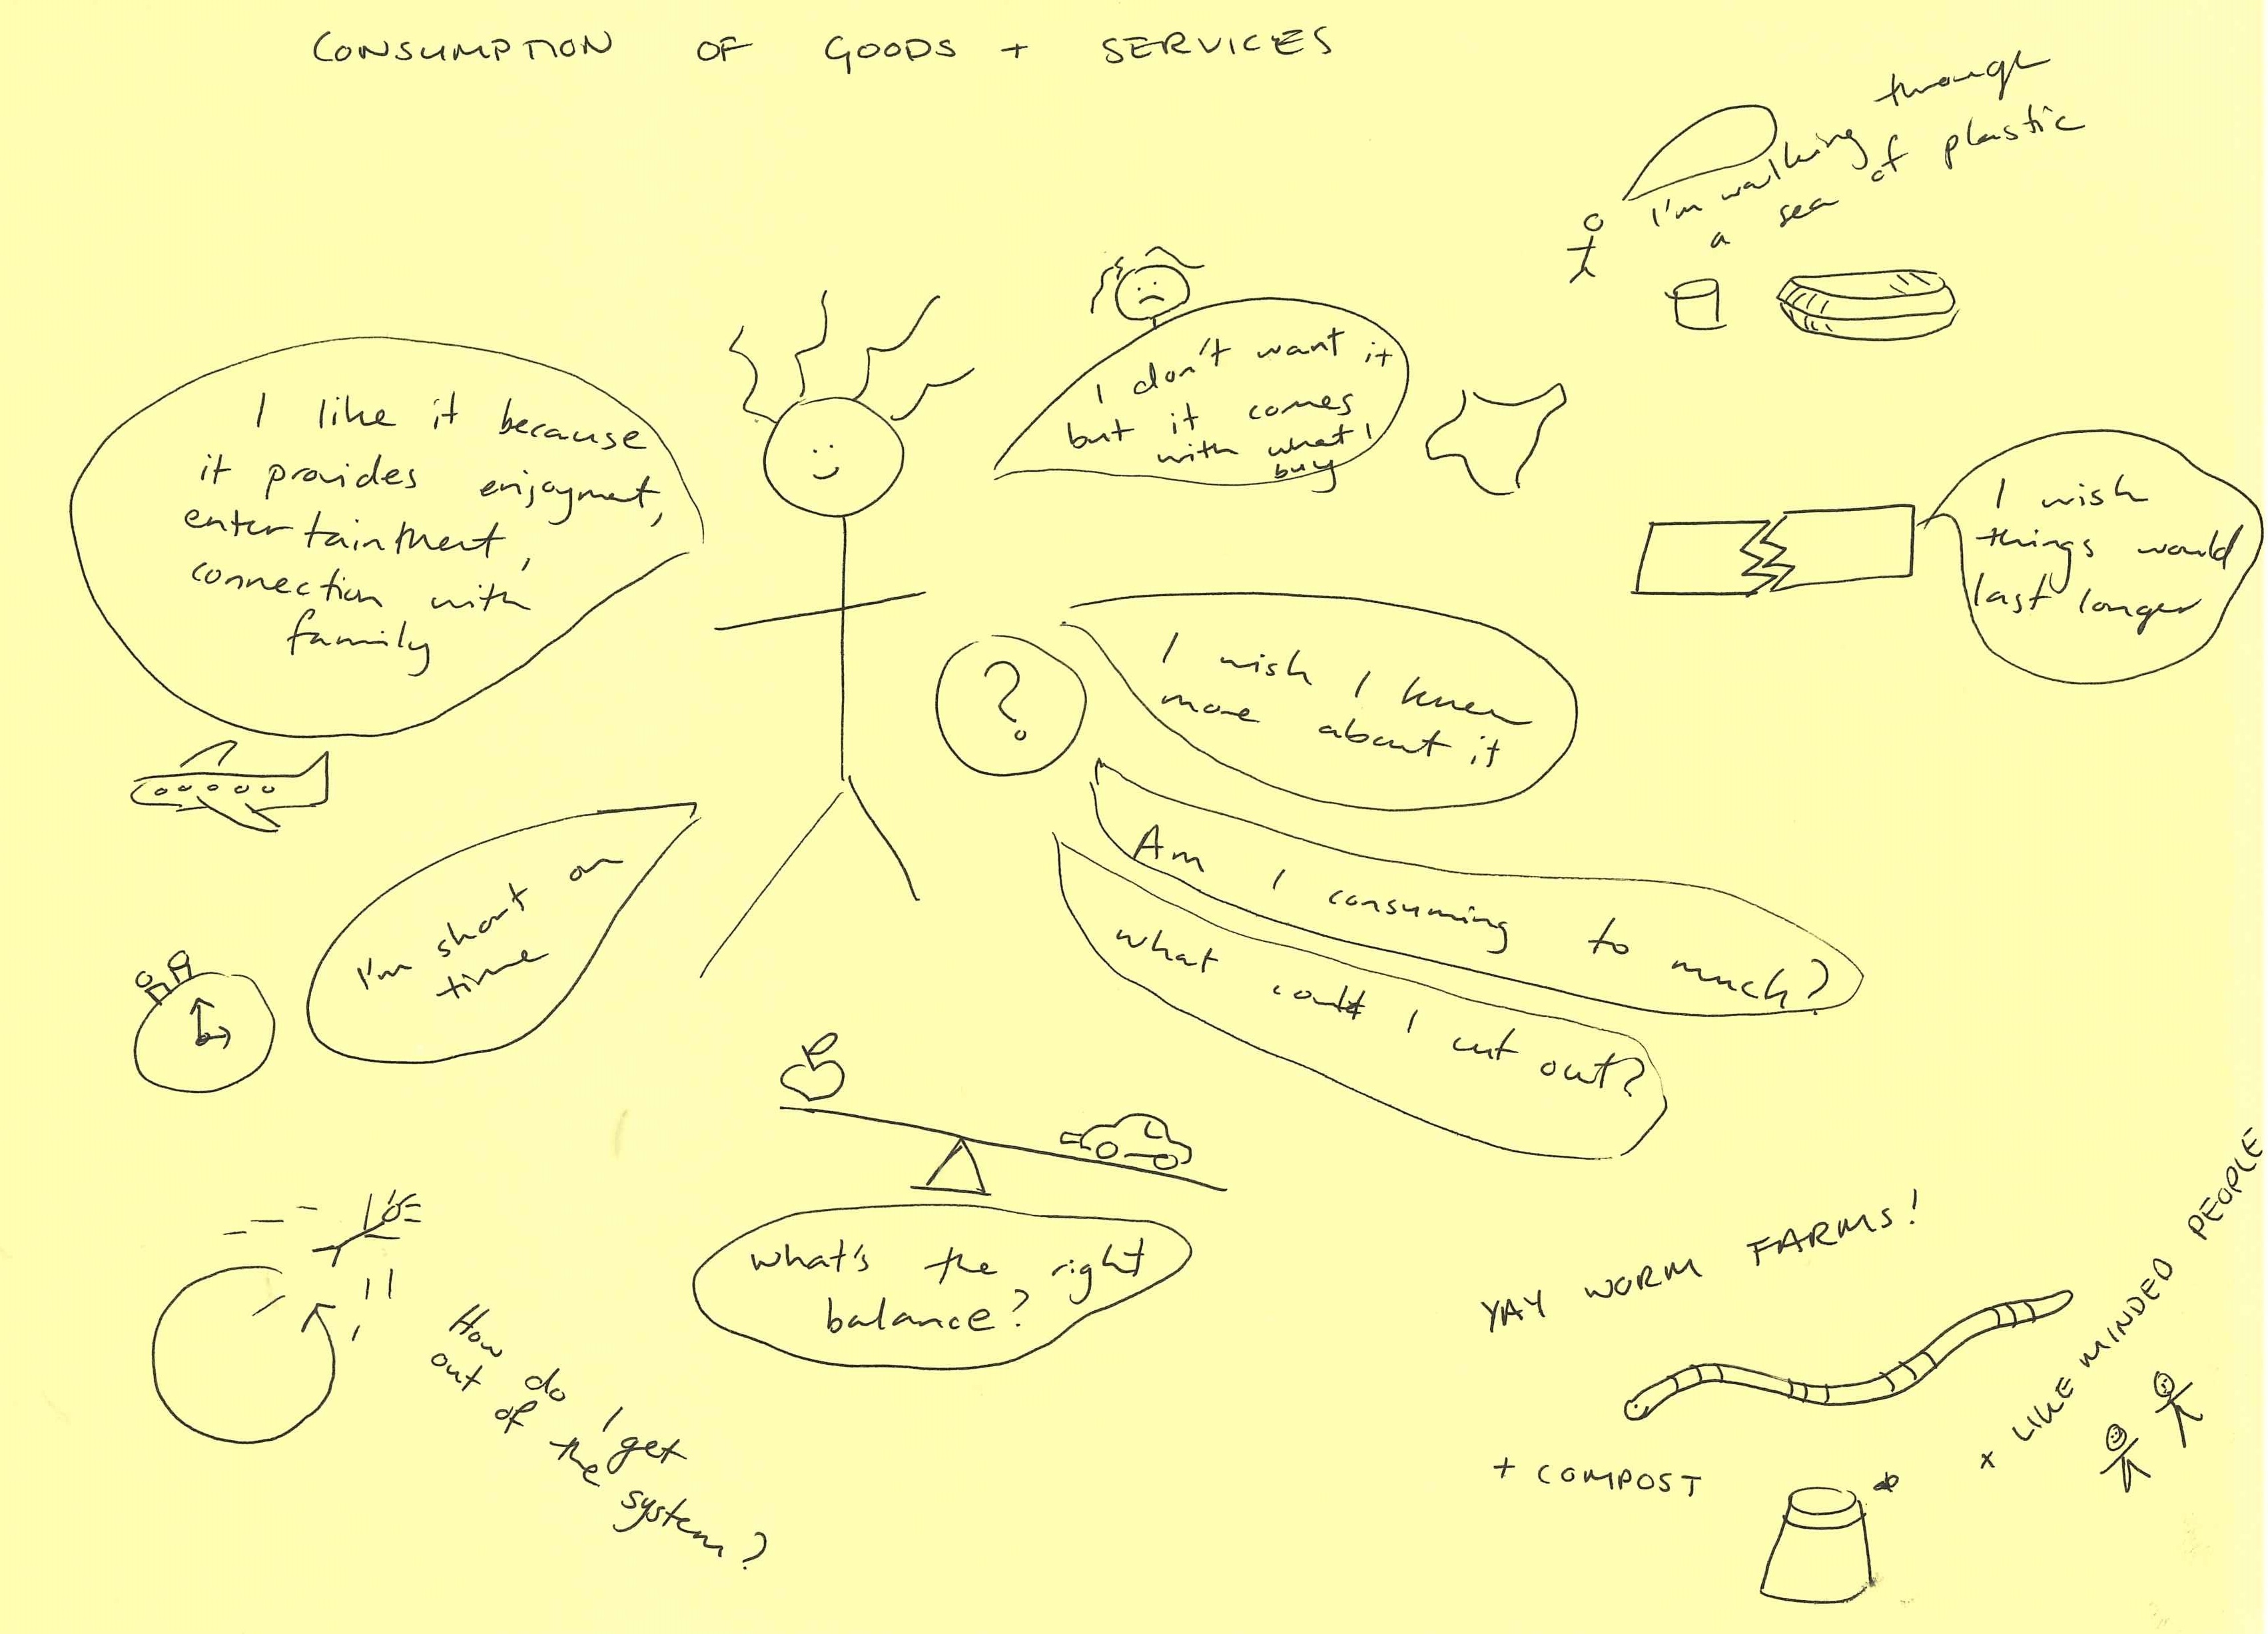 CONSUMPTION OF GOODS + SERVICES
I'm walking through
a sea of plastic
I don't want it
but it comes
with what I
buy
I like it because
it provides enjoyment,
entertainment,
connection with
family
I wish
things would
last longer
?
I wish I knew
more about it
I'm short on
time
Am I consuming to much?
what could I cut out?
what's the right
balance?
How do I get
out of the system?
YAY WORM FARMS!
+ COMPOST
+ LIKE MINDED PEOPLE